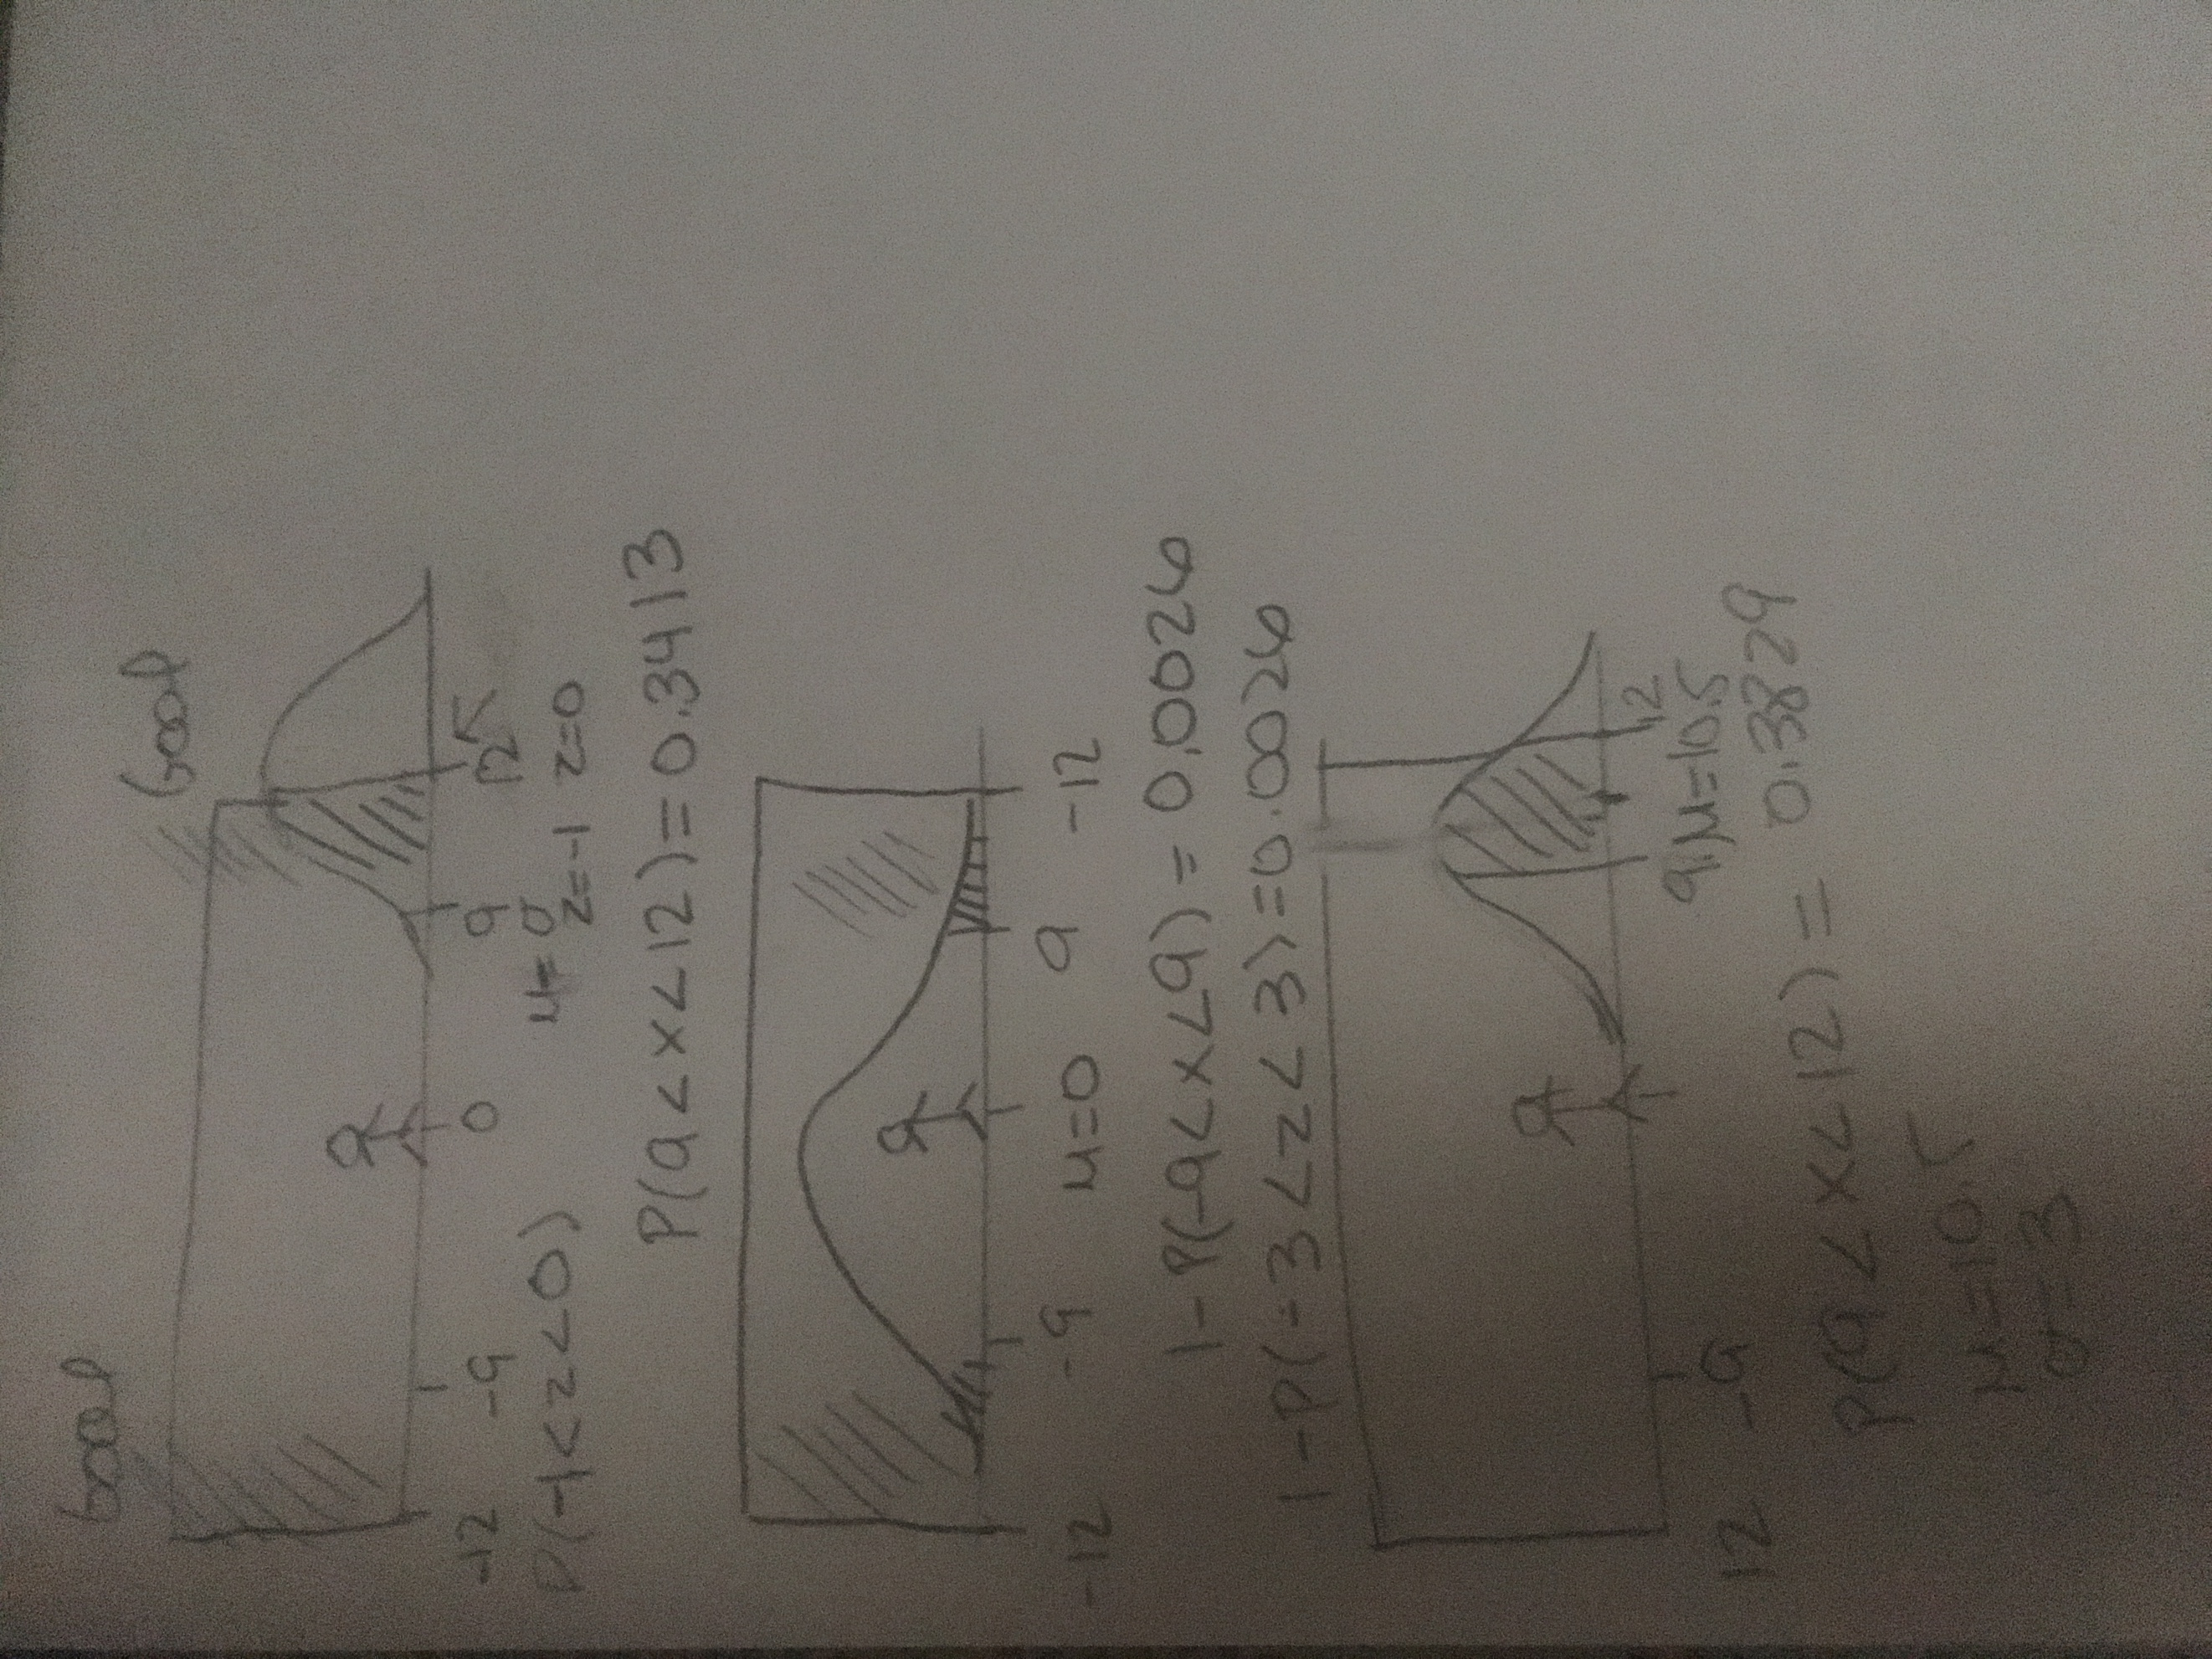 Goal Goal
-12 -9 0 9 12
μ=0
P(-1<z<0) z=-1 z=0
P(9<x<12)=0.3413
-12 -9 μ=0 9 -12
1-P(-9<x<9)=0.0026
1-P(-3<z<3)=0.0026
12 -9 9 μ=10.5 12
P(9<x<12)= 0.3829
μ=10.5
σ=3